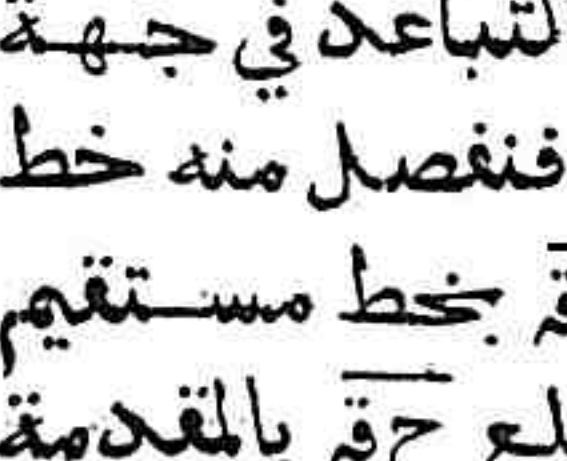 لتباعد في جهة
فنفصل منه خط
بخط مستقيم
حق بالمقدمة